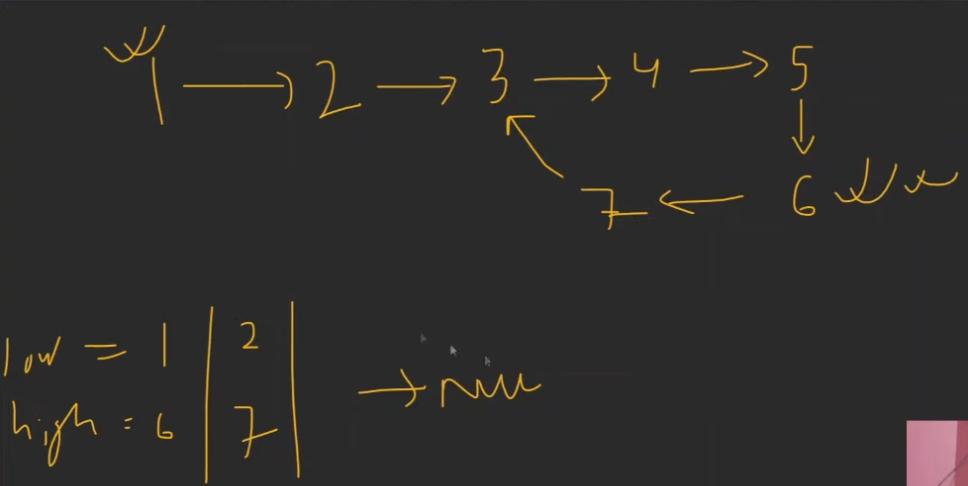 1 → 2 → 3 → 4 → 5
7 ← 6
low = 1 | 2 |
high = 6 | 7 |
→ null